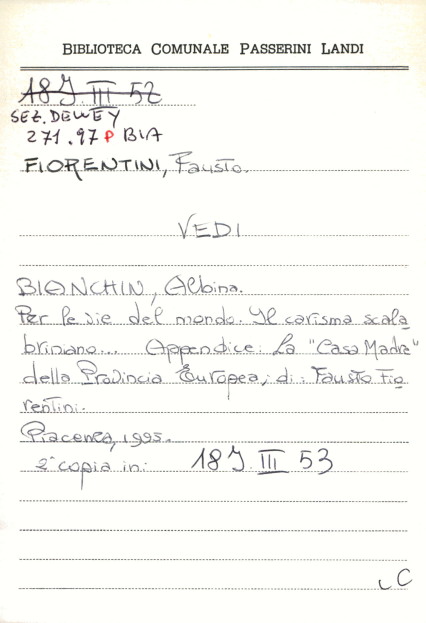 BIBLIOTECA COMUNALE PASSERINI LANDI
18J. III 52
SEZ. DEWEY
271.97 P BIA
FIORENTINI, Fausto.
VEDI
BIANCHIN, Albina.
Per le vie del mondo. Il carisma scala
briniano... Appendice: La "Casa Madre"
della Provincia Europea; di: Fausto Fio
rentini.
Piacenza, 1995.
2ª copia in: 18J. III 53